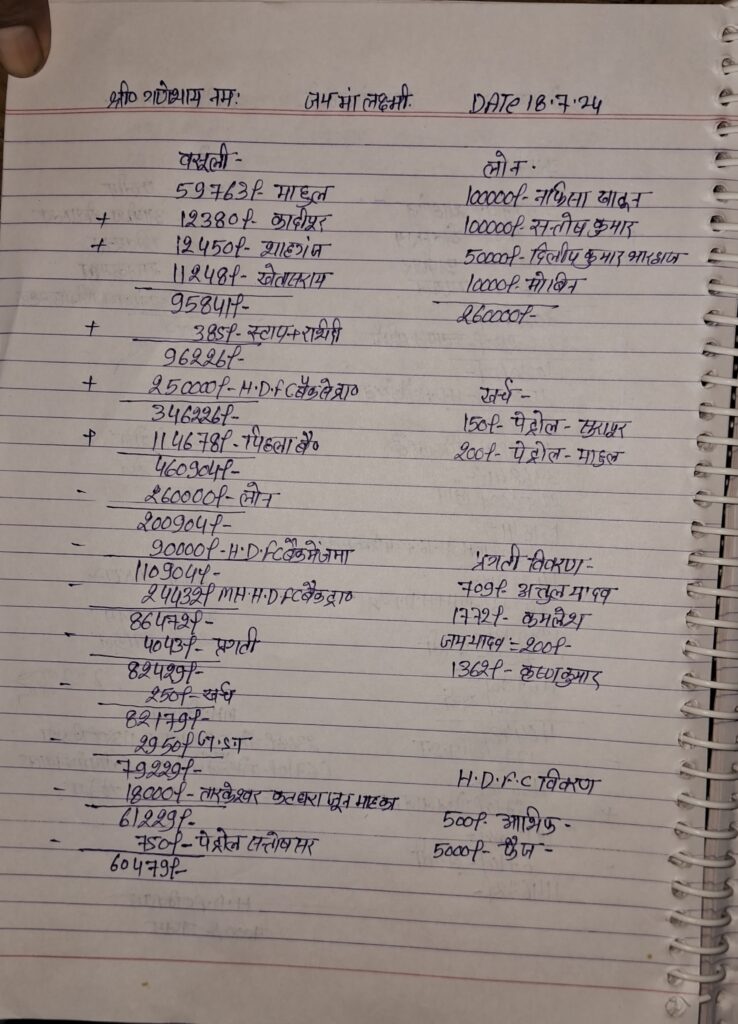 श्री० गणेशाय नमः जय मां लक्ष्मी. DATE 18.7.24
वसूली -
59763/- माहुल
+ 12380/- कादीपुर
+ 12450/- शाहगंज
11248/- खेतासराय
95841/-
+ 385/- स्टाप+राशीदी
96226/-
+ 250000/- H.D.FCबैंक से प्रा०
346226/-
+ 114678/- पिछला बै०
460904/-
- 260000/- लोन
200904/-
- 90000/- H.D.FCबैंक में जमा
110904/-
- 24432/- MH.H.D.FCबैंक ट्रा०
86472/-
- 4043/- प्रगती
82429/-
- 250/- खर्च
82179/-
- 2950/- G.S.T
79229/-
- 18000/- तारकेश्वर जून माह का
61229/-
- 750/- पेट्रोल सन्तोष सर
60479/-
लोन.
100000/- नफिसा खातून
100000/- सन्तोष कुमार
50000/- दिलीप कुमार भारद्वाज
10000/- मोबिन
260000/-
खर्च -
150/- पेट्रोल -
200/- पेट्रोल - माहुल
प्रगती विवरण :-
709/- अतुल यादव
1772/- कमलेश
जय यादव = 200/-
1362/- कृष्ण कुमार
H.D.F.C विवरण
500/- आशिफ -
5000/- फैज -